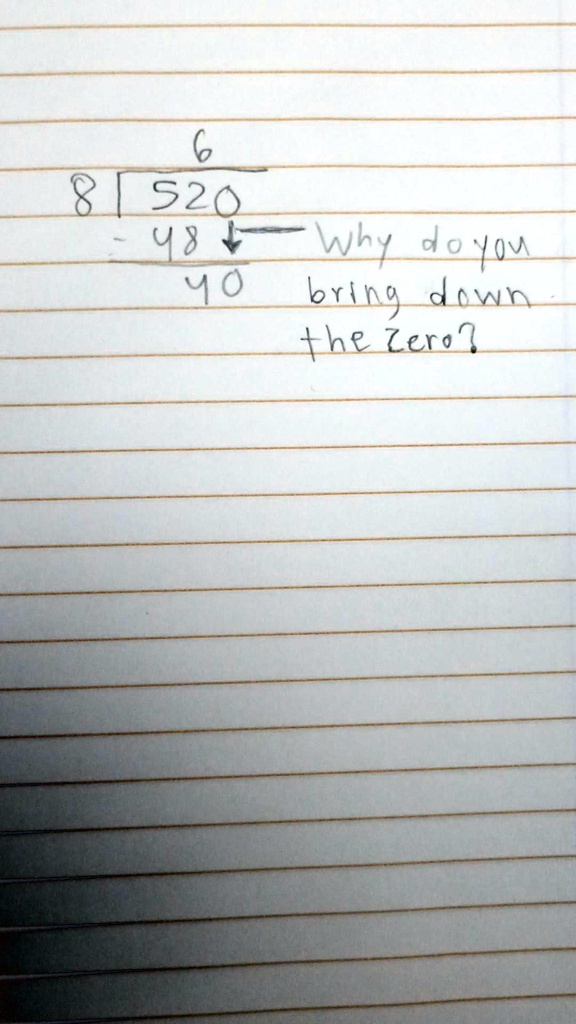 6
8 520
- 48 Why do you
40 bring down
the zero?